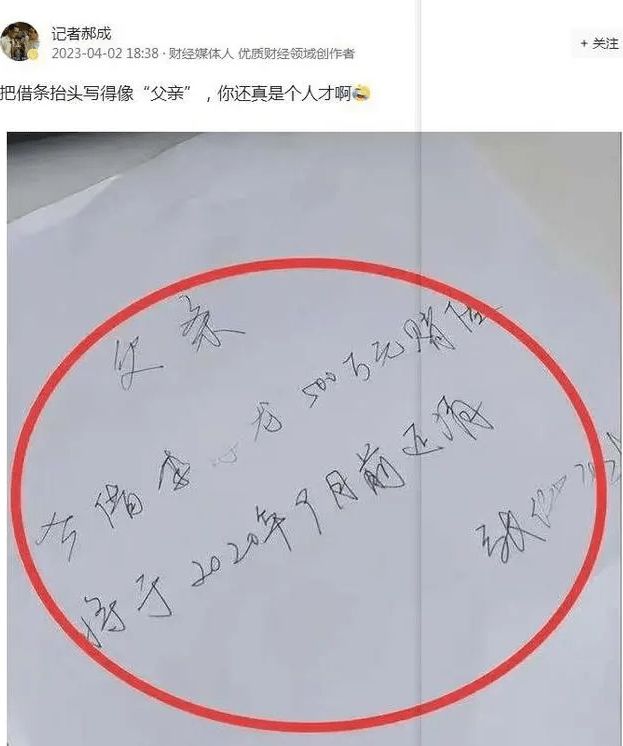 记者郝成
2023-04-02 18:38 · 财经媒体人 优质财经领域创作者
+ 关注
把借条抬头写得像“父亲”，你还真是个人才啊🤣
欠条
今借李 龙500万元赌位
将于2020年9月前还清
张